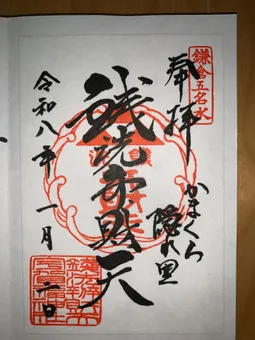 鎌倉五名水
奉拝
かまくら
隠れ里
銭洗弁財天
令和八年一月二日